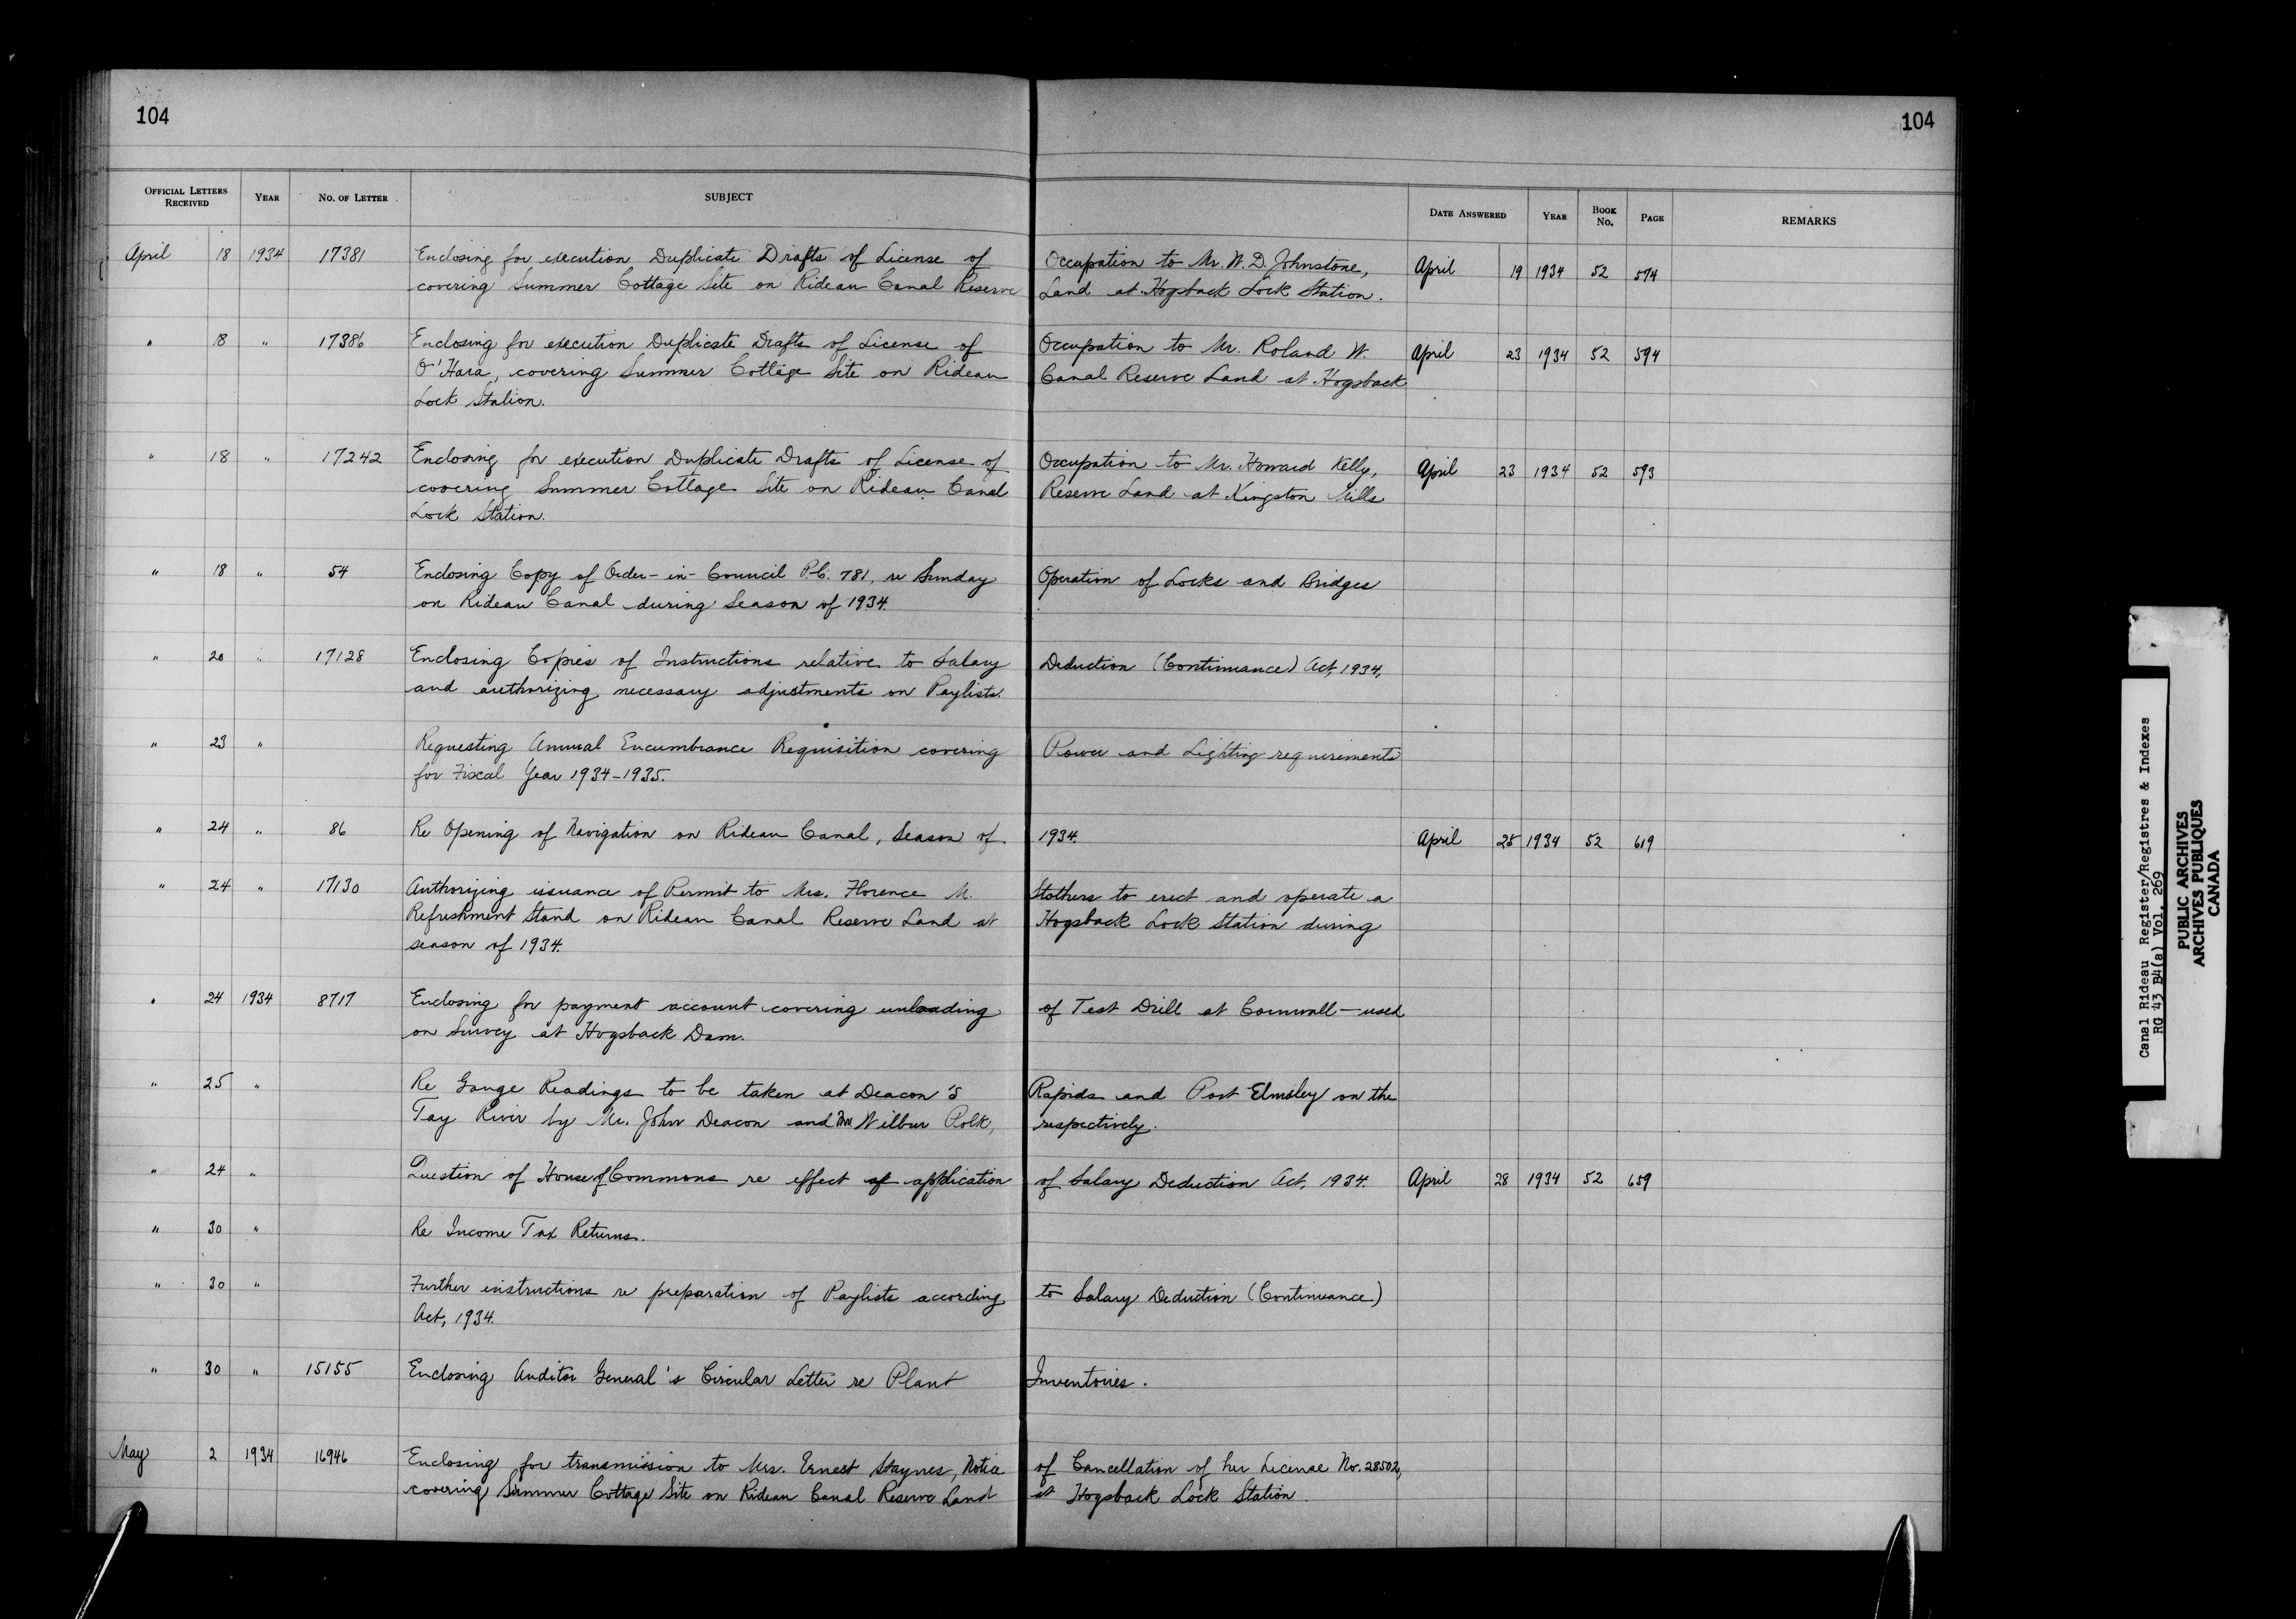 104
104
OFFICIAL LETTERS RECEIVED YEAR NO. OF LETTER SUBJECT DATE ANSWERED YEAR BOOK No. PAGE REMARKS
April 18 1934 17381 Enclosing for execution Duplicate Drafts of License of Occupation to Mr. W. D. Johnstone, April 19 1934 52 574
covering Summer Cottage Site on Rideau Canal Reserve Land at Hogsback Lock Station.
" 18 " 17386 Enclosing for execution Duplicate Drafts of License of Occupation to Mr. Roland W. April 23 1934 52 594
O'Hara, covering Summer Cottage Site on Rideau Canal Reserve Land at Hogsback
Lock Station.
" 18 " 17242 Enclosing for execution Duplicate Drafts of License of Occupation to Mr. Howard Kelly, April 23 1934 52 593
covering Summer Cottage Site on Rideau Canal Reserve Land at Kingston Mills
Lock Station.
" 18 " 54 Enclosing Copy of Order-in-Council P.C. 781, re Sunday Operation of Locks and Bridges
on Rideau Canal during Season of 1934.
" 20 " 17128 Enclosing Copies of Instructions relative to Salary Deduction (Continuance) Act, 1934,
and authorizing necessary adjustments on Paylists.
" 23 " Requesting Annual Encumbrance Requisition covering Power and Lighting requirements
for Fiscal Year 1934-1935.
" 24 " 86 Re Opening of Navigation on Rideau Canal, Season of 1934. April 25 1934 52 619
" 24 " 17130 Authorizing issuance of Permit to Mrs. Florence M. Stothers to erect and operate a
Refreshment Stand on Rideau Canal Reserve Land at Hogsback Lock Station during
season of 1934.
" 24 1934 8717 Enclosing for payment account covering unloading of Test Drill at Cornwall - used
on Survey at Hogsback Dam.
" 25 " Re Gauge Readings to be taken at Deacon's Rapids and Port Elmsley on the
Tay River by Mr. John Deacon and Mr. Wilbur Polk, respectively.
" 24 " Question of House of Commons re effect of application of Salary Deduction Act, 1934. April 28 1934 52 659
" 30 " Re Income Tax Returns.
" 30 " Further instructions re preparation of Paylists according to Salary Deduction (Continuance)
Act, 1934.
" 30 " 15155 Enclosing Auditor General's Circular Letter re Plant Inventories.
May 2 1934 16946 Enclosing for transmission to Mrs. Ernest Staynes, Notice of Cancellation of her License No. 28502,
covering Summer Cottage Site on Rideau Canal Reserve Land at Hogsback Lock Station.
Canal Rideau Register/Registres & Indexes
RG 43 B4(a) Vol. 269
PUBLIC ARCHIVES
ARCHIVES PUBLIQUES
CANADA